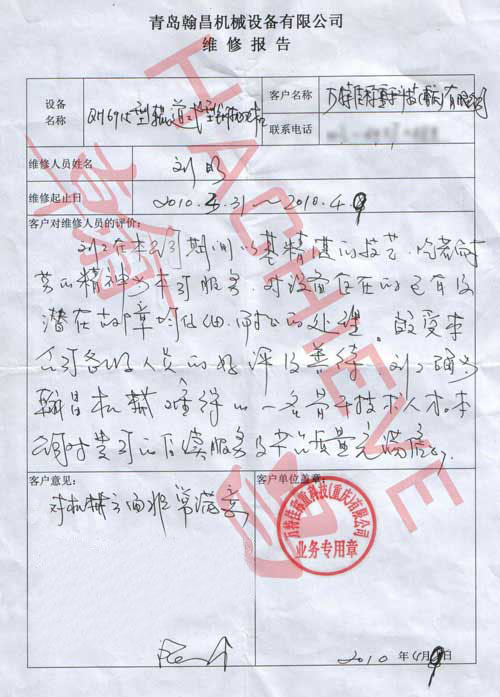 青岛翰昌机械设备有限公司
维修报告
设备
名称
QH69 型辊道式
客户名称
有限公司
联系电话
维修人员姓名
刘明
维修起止日
2010.3.31～2010.4.9
客户对维修人员的评价：
刘工在本公司期间以其精湛的技艺，吃苦耐
劳的精神为本公司服务，对设备存在的已有及
潜在故障均仔细、的处理。颇受本
公司各级人员的好评及善待，刘工确为
翰昌机械难得的一名骨干技术人才。本
公司对贵司的后续服务及产品质量充满信心。
客户意见：
对机械方面非常满意
客户单位盖章：
科技(重庆)有限公司
业务专用章
2010年4月9日
HACHIEVE
翰昌